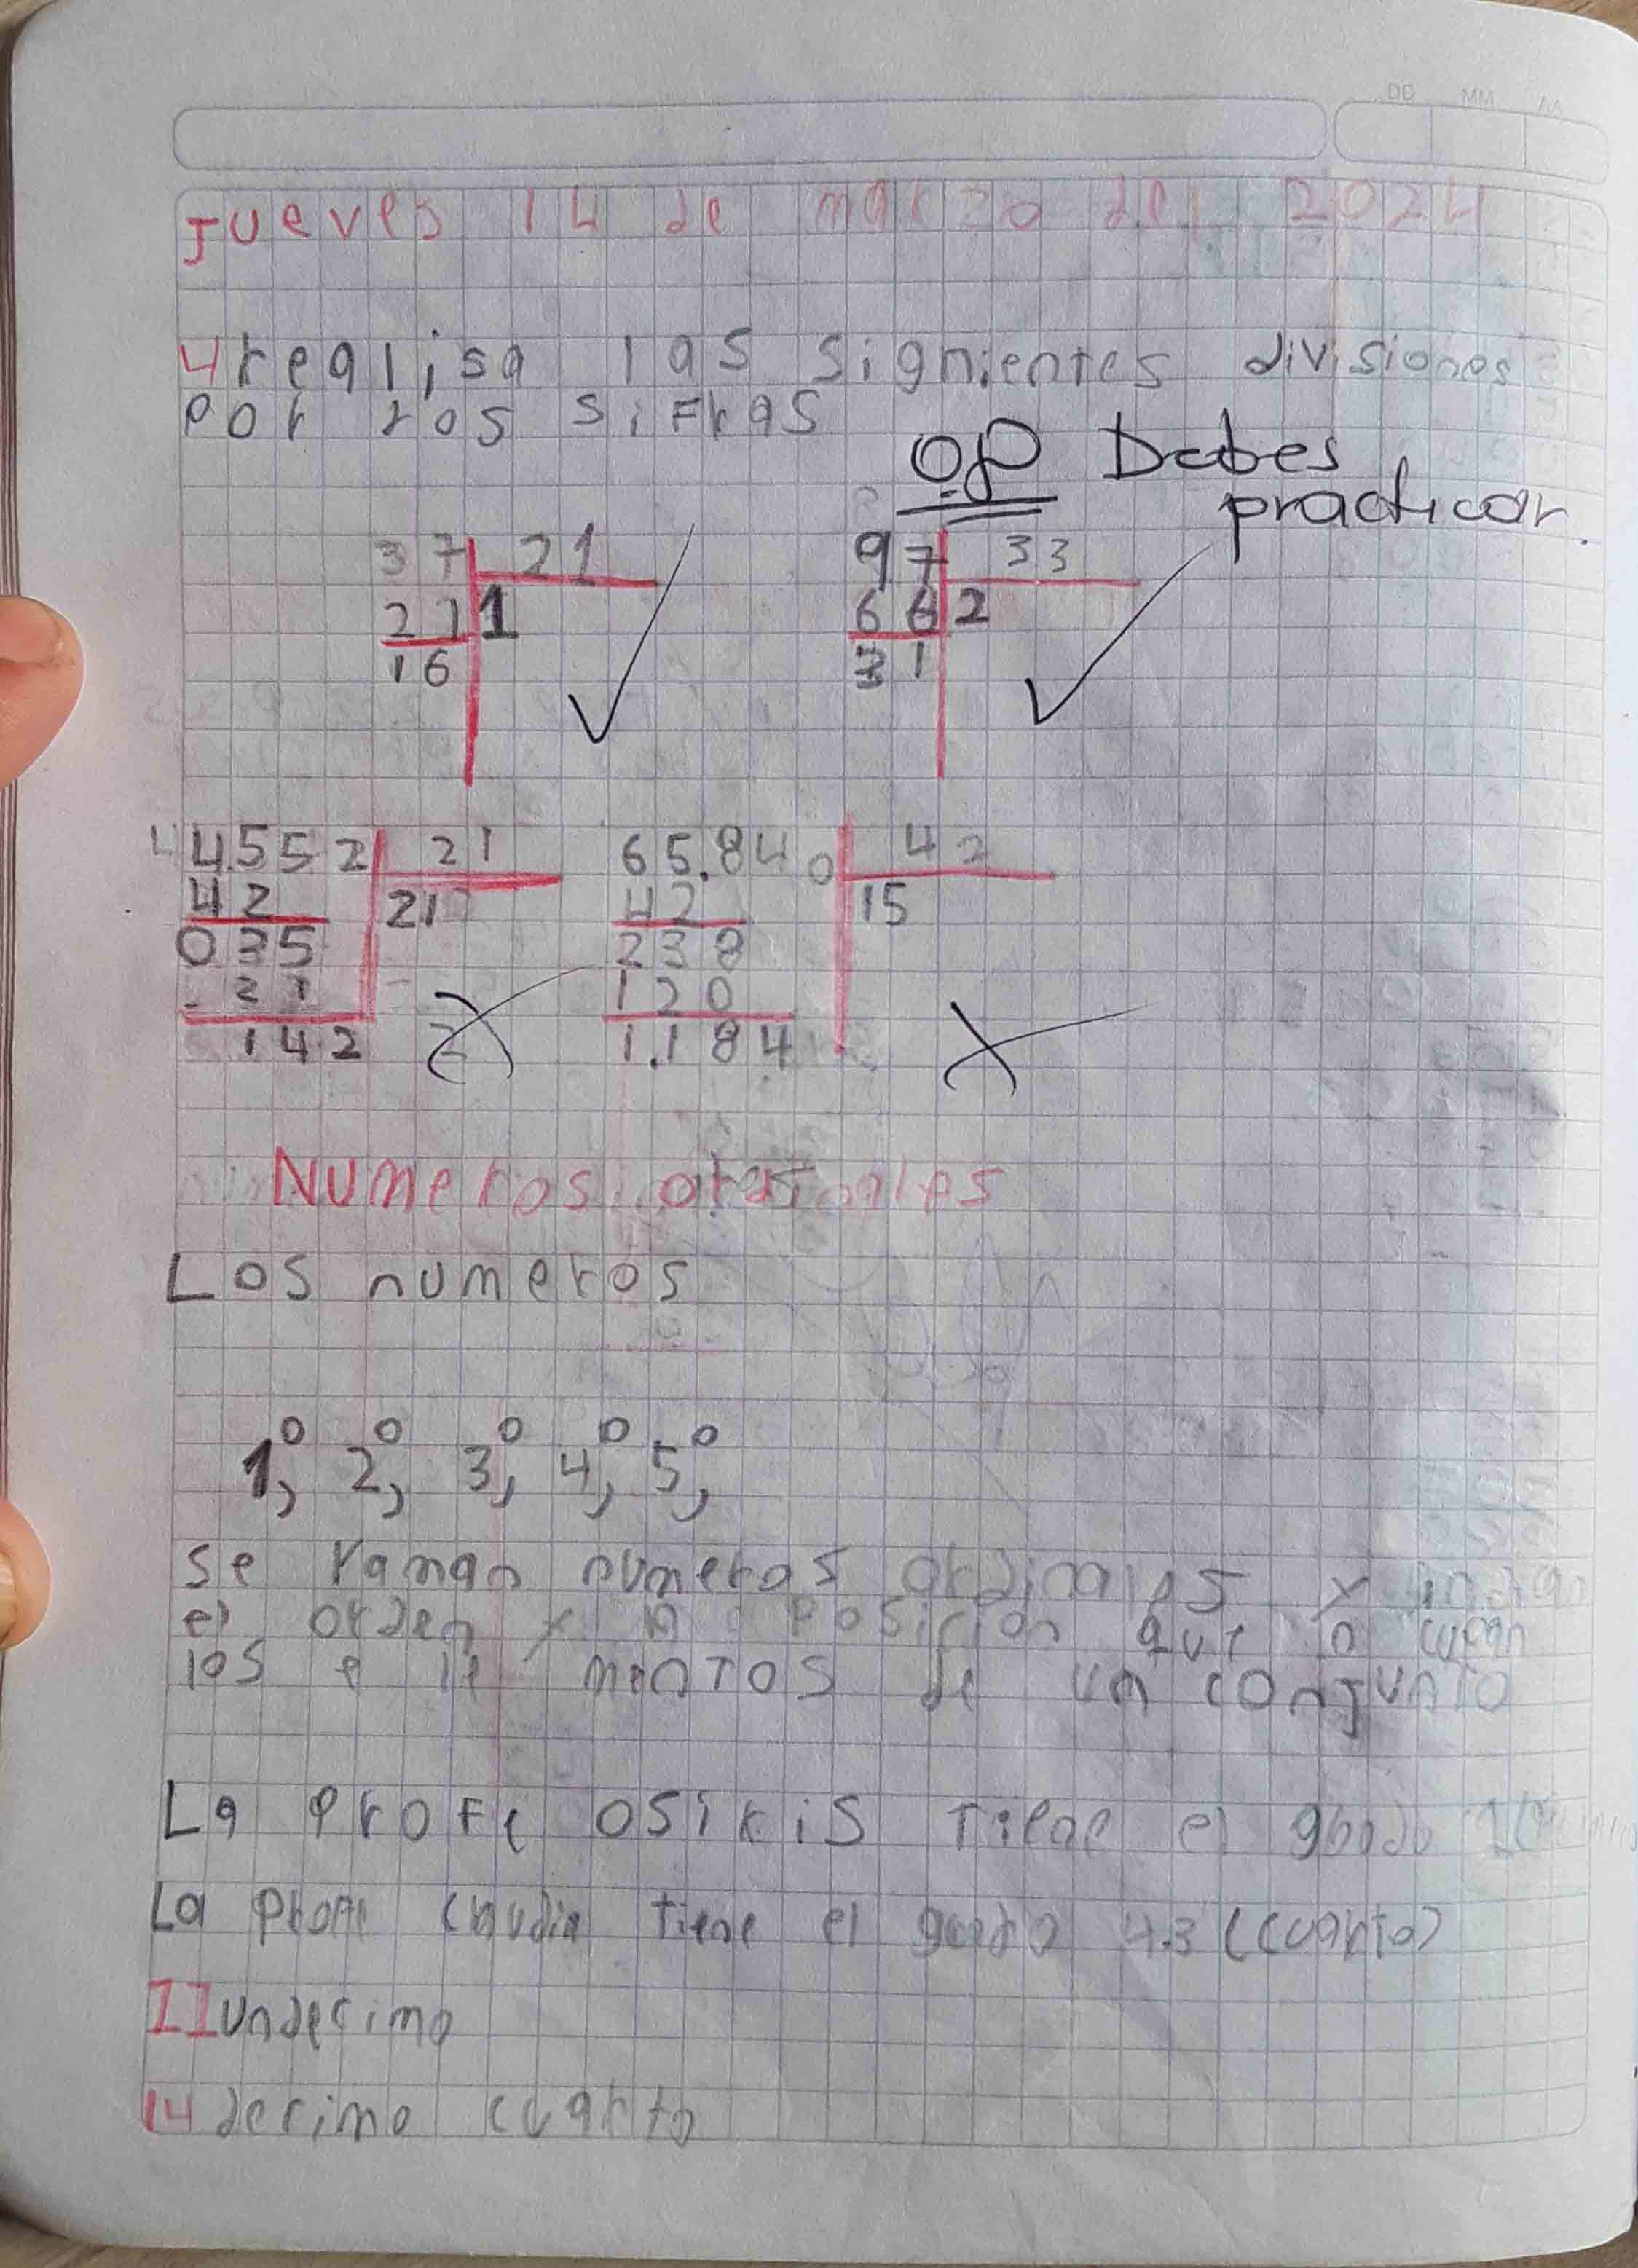 DD MM AA
Jueves 14 de marzo del 2024
4 realisa las signientes divisiones
por ros sifras
Debes
practicar.
37 21
21 1
16
97 33
66 2
31
4.552 21
42 21
035
21
142
65.840 42
42 15
238
120
1.184
Numeros ordinales
Los numeros
1°, 2°, 3°, 4°, 5°,
se yaman numeros ordinales y indican
el orden y posicion que o cupan
los e le mentos de un conjunto
La profe osiris Tiene el grado
La profe claudia tiene el grado 4.3 (cuarto)
11 undecimo
14 decimo cuarto